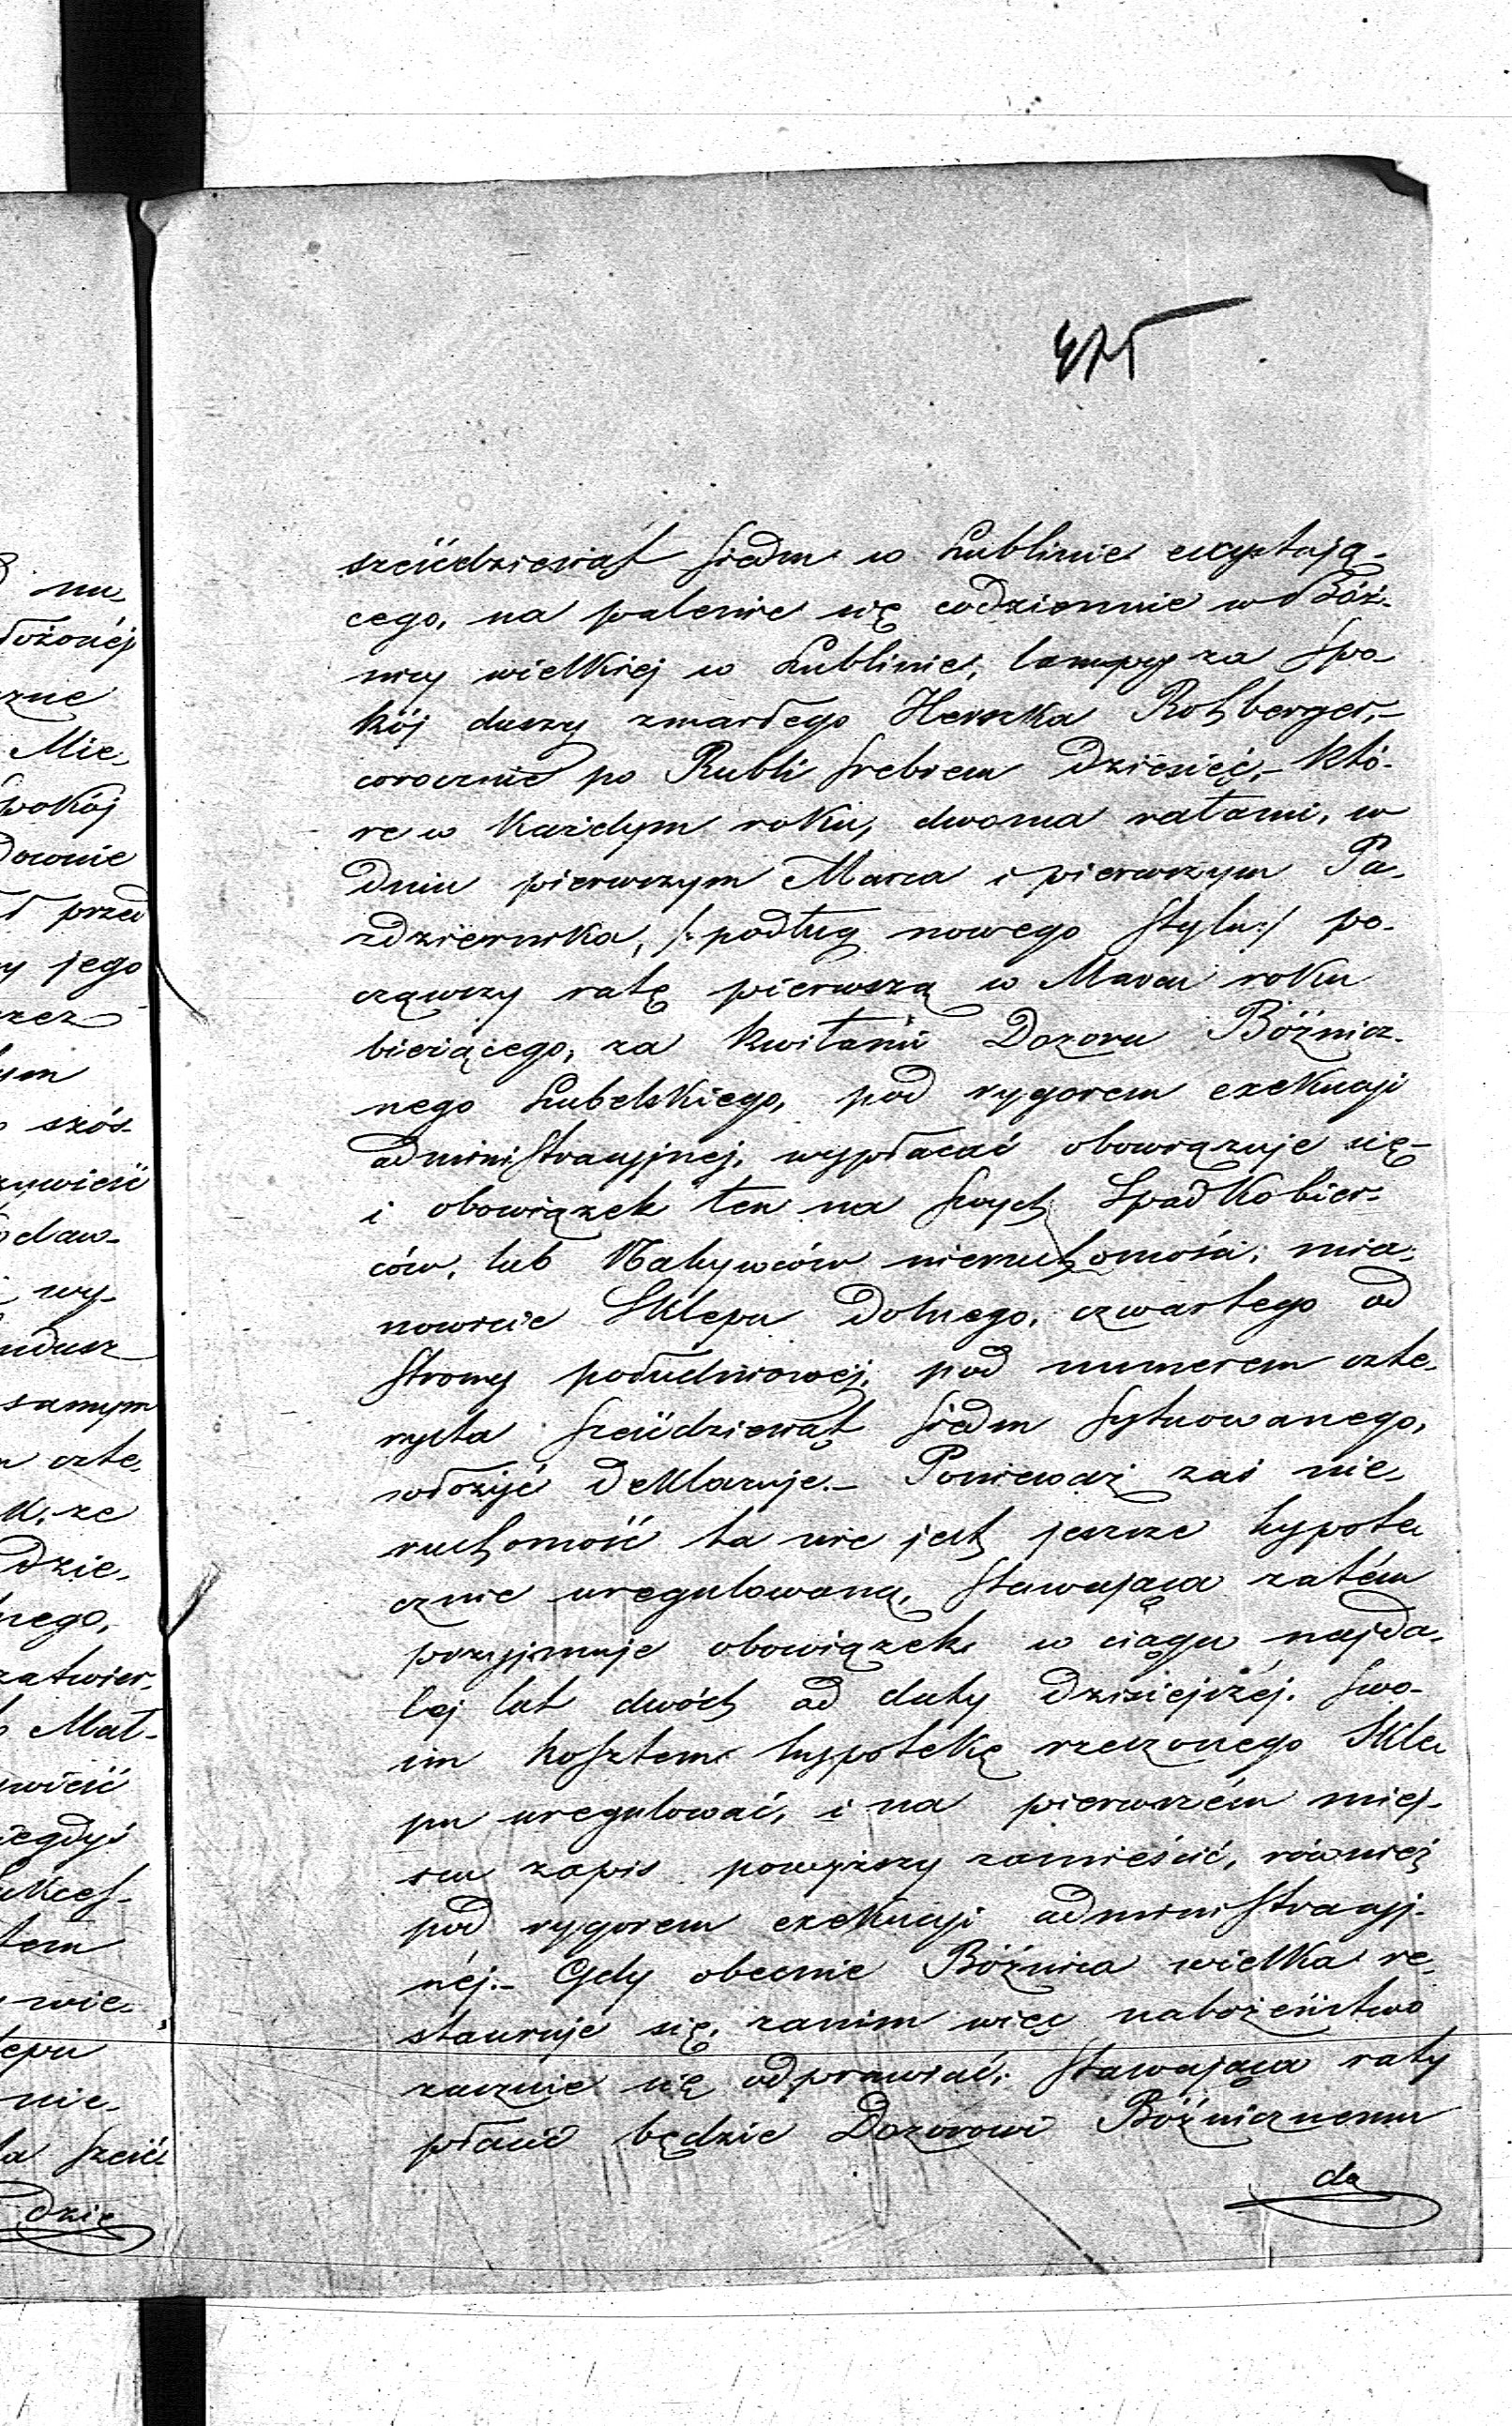 475
sześćdziesiąt siedm w Lublinie exystują-
cego, na palenie się codziennie w Bóż-
nicy wielkiej w Lublinie, lampy za spo-
kój duszy zmarłego Herszka Rohberger,-
corocznie po Rubli srebrem dziesięć,- któ-
re w każdym roku, dwoma ratami, w
dniu pierwszym Marca i pierwszym Pa-
zdziernika, /: podług nowego Stylu :/ po-
cząwszy ratę pierwszą w Marcu roku
bieżącego, za kwitami Dozoru Bóżnicz-
nego Lubelskiego, pod rygorem exekucji
administracyjnej, wypłacać obowiązuje się-
i obowiązek ten na swych Spadkobier-
ców, lub Nabywców nieruchomości, mia-
nowicie Sklepu dolnego, czwartego od
strony południowej, pod numerem czte-
rysta sześćdziesiąt siedm sytuowanego,
włożyć deklaruje.- Ponieważ zaś nie-
ruchomość ta nie jest jeszcze hypote-
cznie uregulowaną, stawająca zatém
przyjmuje obowiązek w ciągu najda-
lej lat dwóch od daty dzisiejszéj, swo-
im kosztem hypotekę rzeczonego Skle-
pu uregulować, i na pierwszém miej-
scu zapis powyższy zamieścić, również
pod rygorem exekucji administracyj-
néj.- Gdy obecnie Bóżnica wielka re-
stauruje się, zanim więc nabożeństwo
zacznie się odprawiać, stawająca raty
płacić będzie Dozorowi Bóżnicznemu
do
nu-
łożonéj
czne
Mie-
spokój
przed
jego
szós-
wy-
samym
czte-
dzie-
nego,
zatwier-
niegdyś
wie-
nie-
sześć
dzie